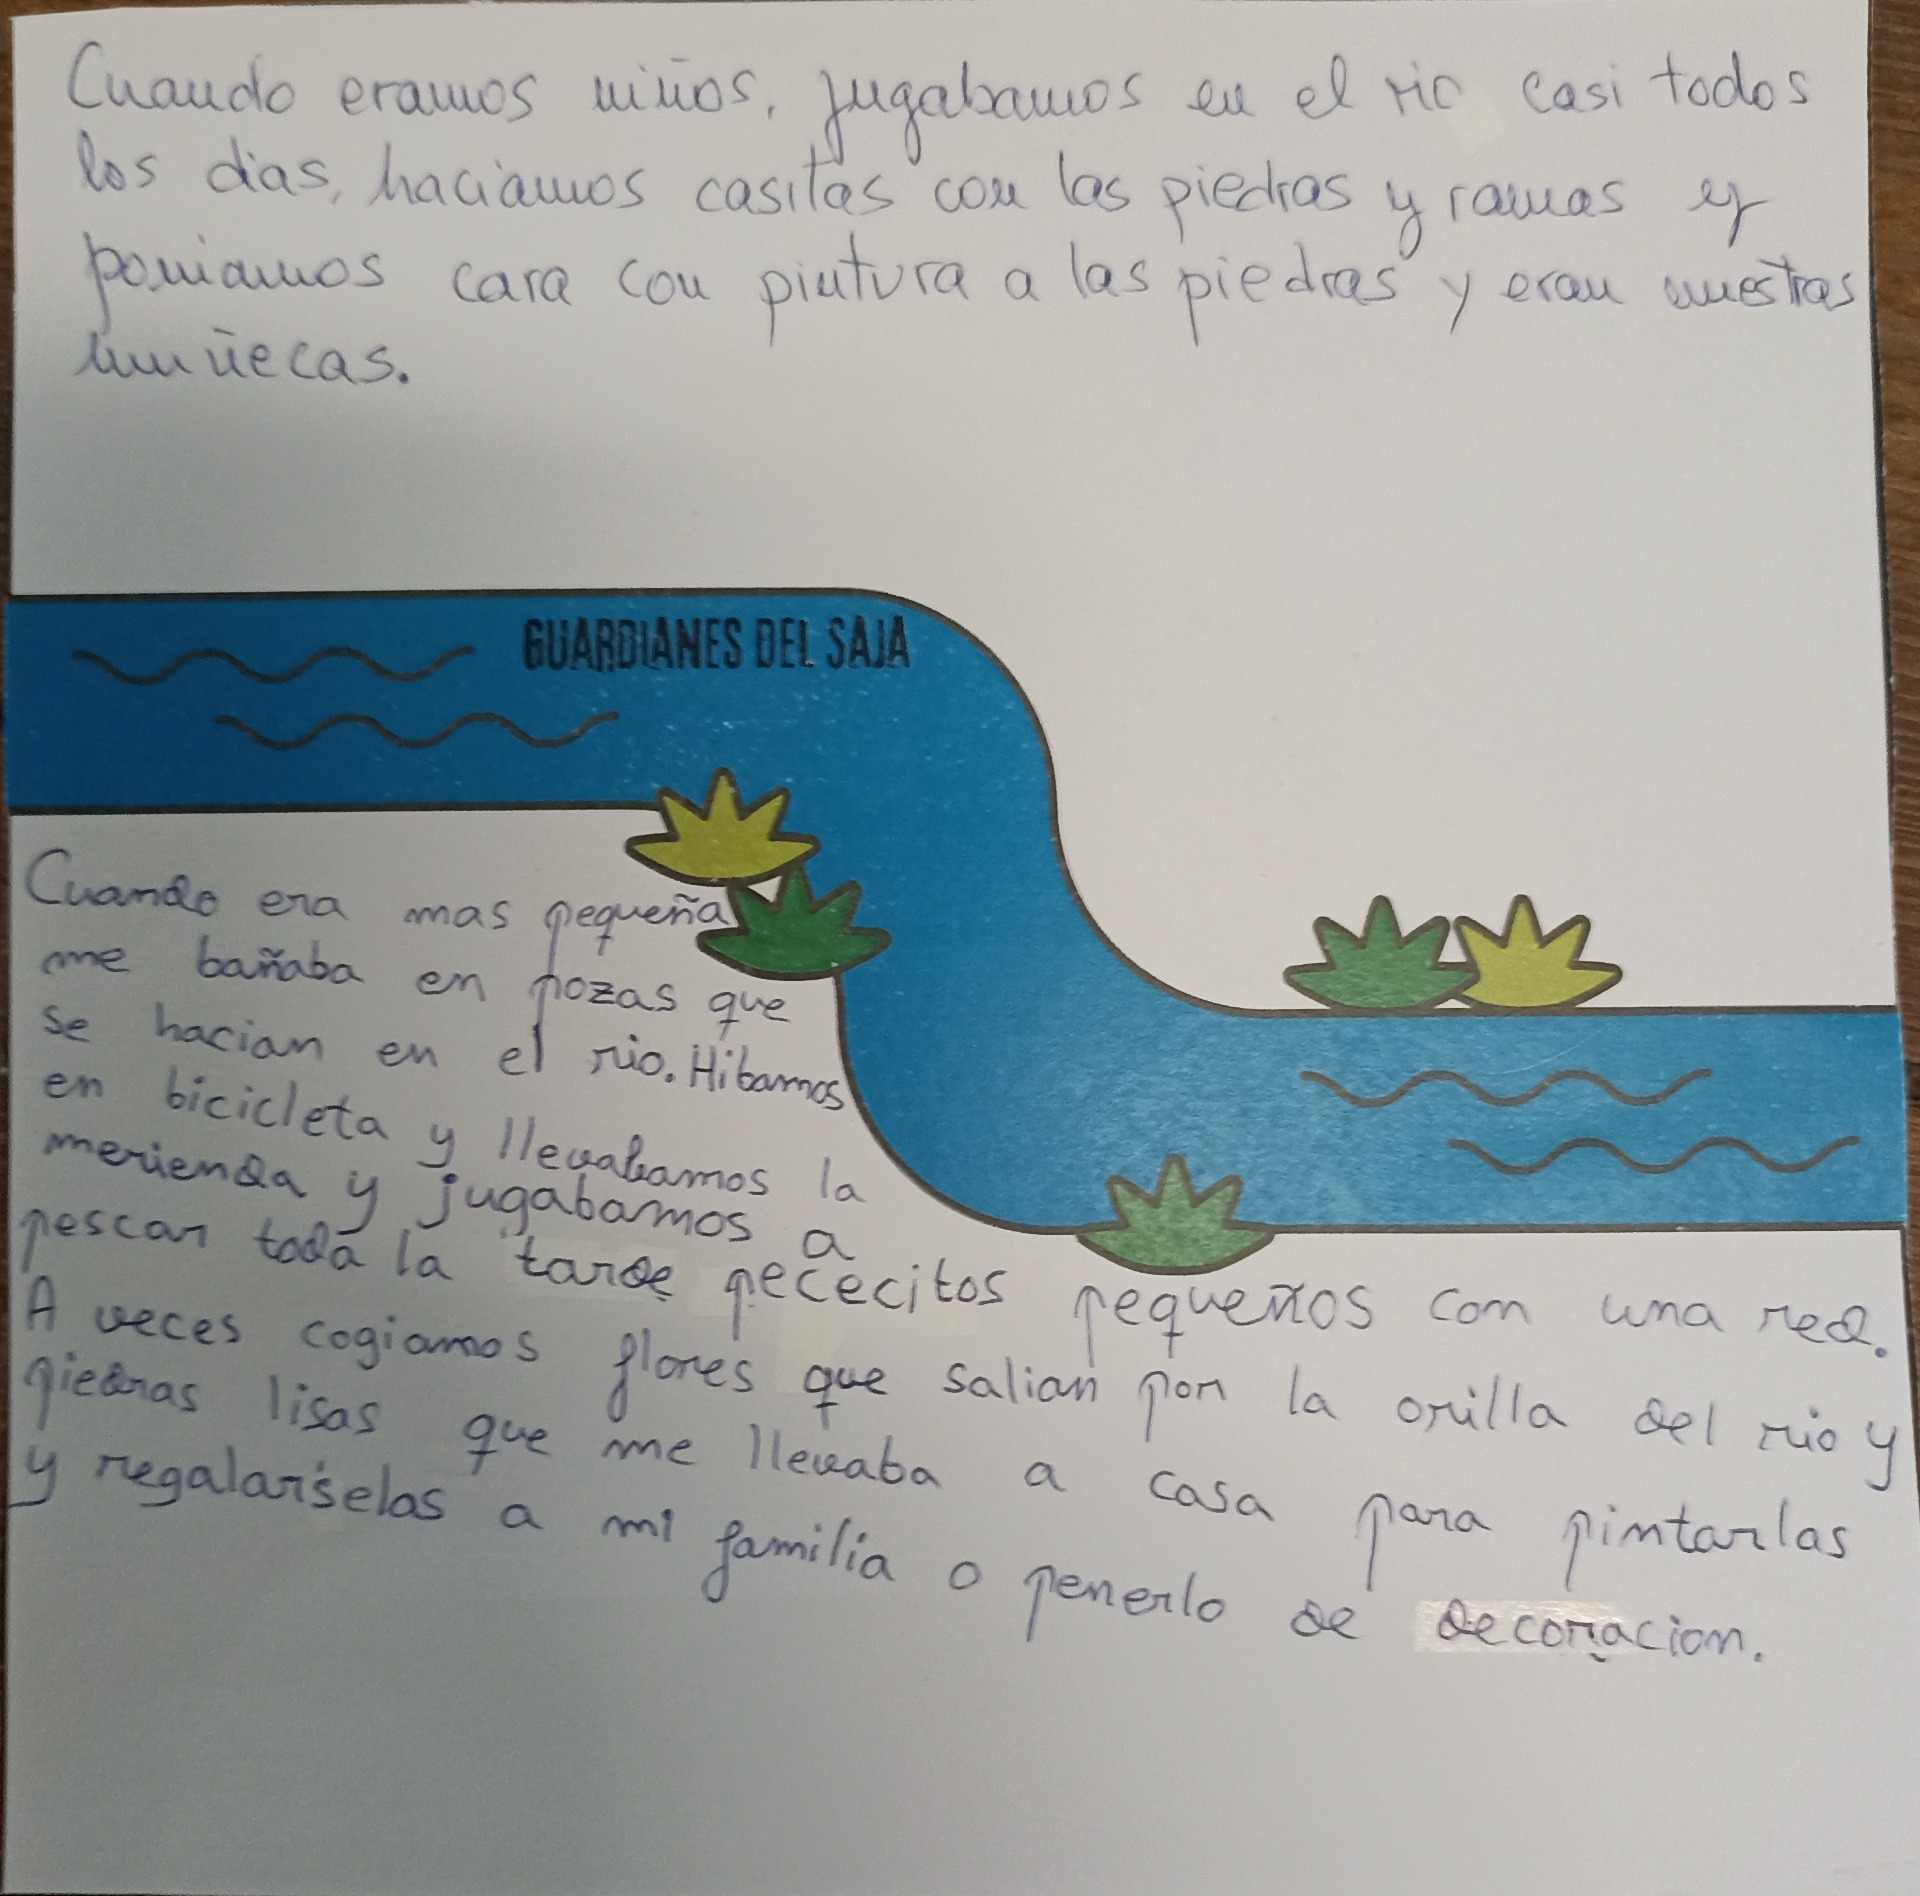 Cuando eramos niños, jugabamos en el rio casi todos
los dias, haciamos casitas con las piedras y ramas y
poniamos cara con pintura a las piedras y eran nuestras
muñecas.
GUARDIANES DEL SAJA
Cuando era mas pequeña
me bañaba en pozas que
se hacian en el rio. Hibamos
en bicicleta y llevabamos la
merienda y jugabamos a
pescar toda la tarde pececitos pequeños con una red.
A veces cogiamos flores que salian por la orilla del rio y
piedras lisas que me llevaba a casa para pintarlas
y regalarselas a mi familia o penerlo de decoracion.